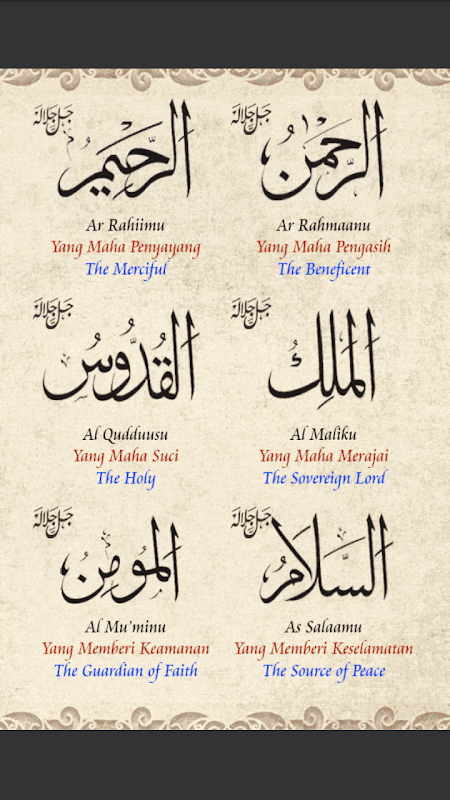 جل جلاله
الرَّحِيمُ
Ar Rahiimu
Yang Maha Penyayang
The Merciful
جل جلاله
الرَّحْمَنُ
Ar Rahmaanu
Yang Maha Pengasih
The Beneficent
جل جلاله
القُدُّوسُ
Al Qudduusu
Yang Maha Suci
The Holy
جل جلاله
المَلِكُ
Al Maliku
Yang Maha Merajai
The Sovereign Lord
جل جلاله
المُومِنُ
Al Mu'minu
Yang Memberi Keamanan
The Guardian of Faith
جل جلاله
السَّلَامُ
As Salaamu
Yang Memberi Keselamatan
The Source of Peace